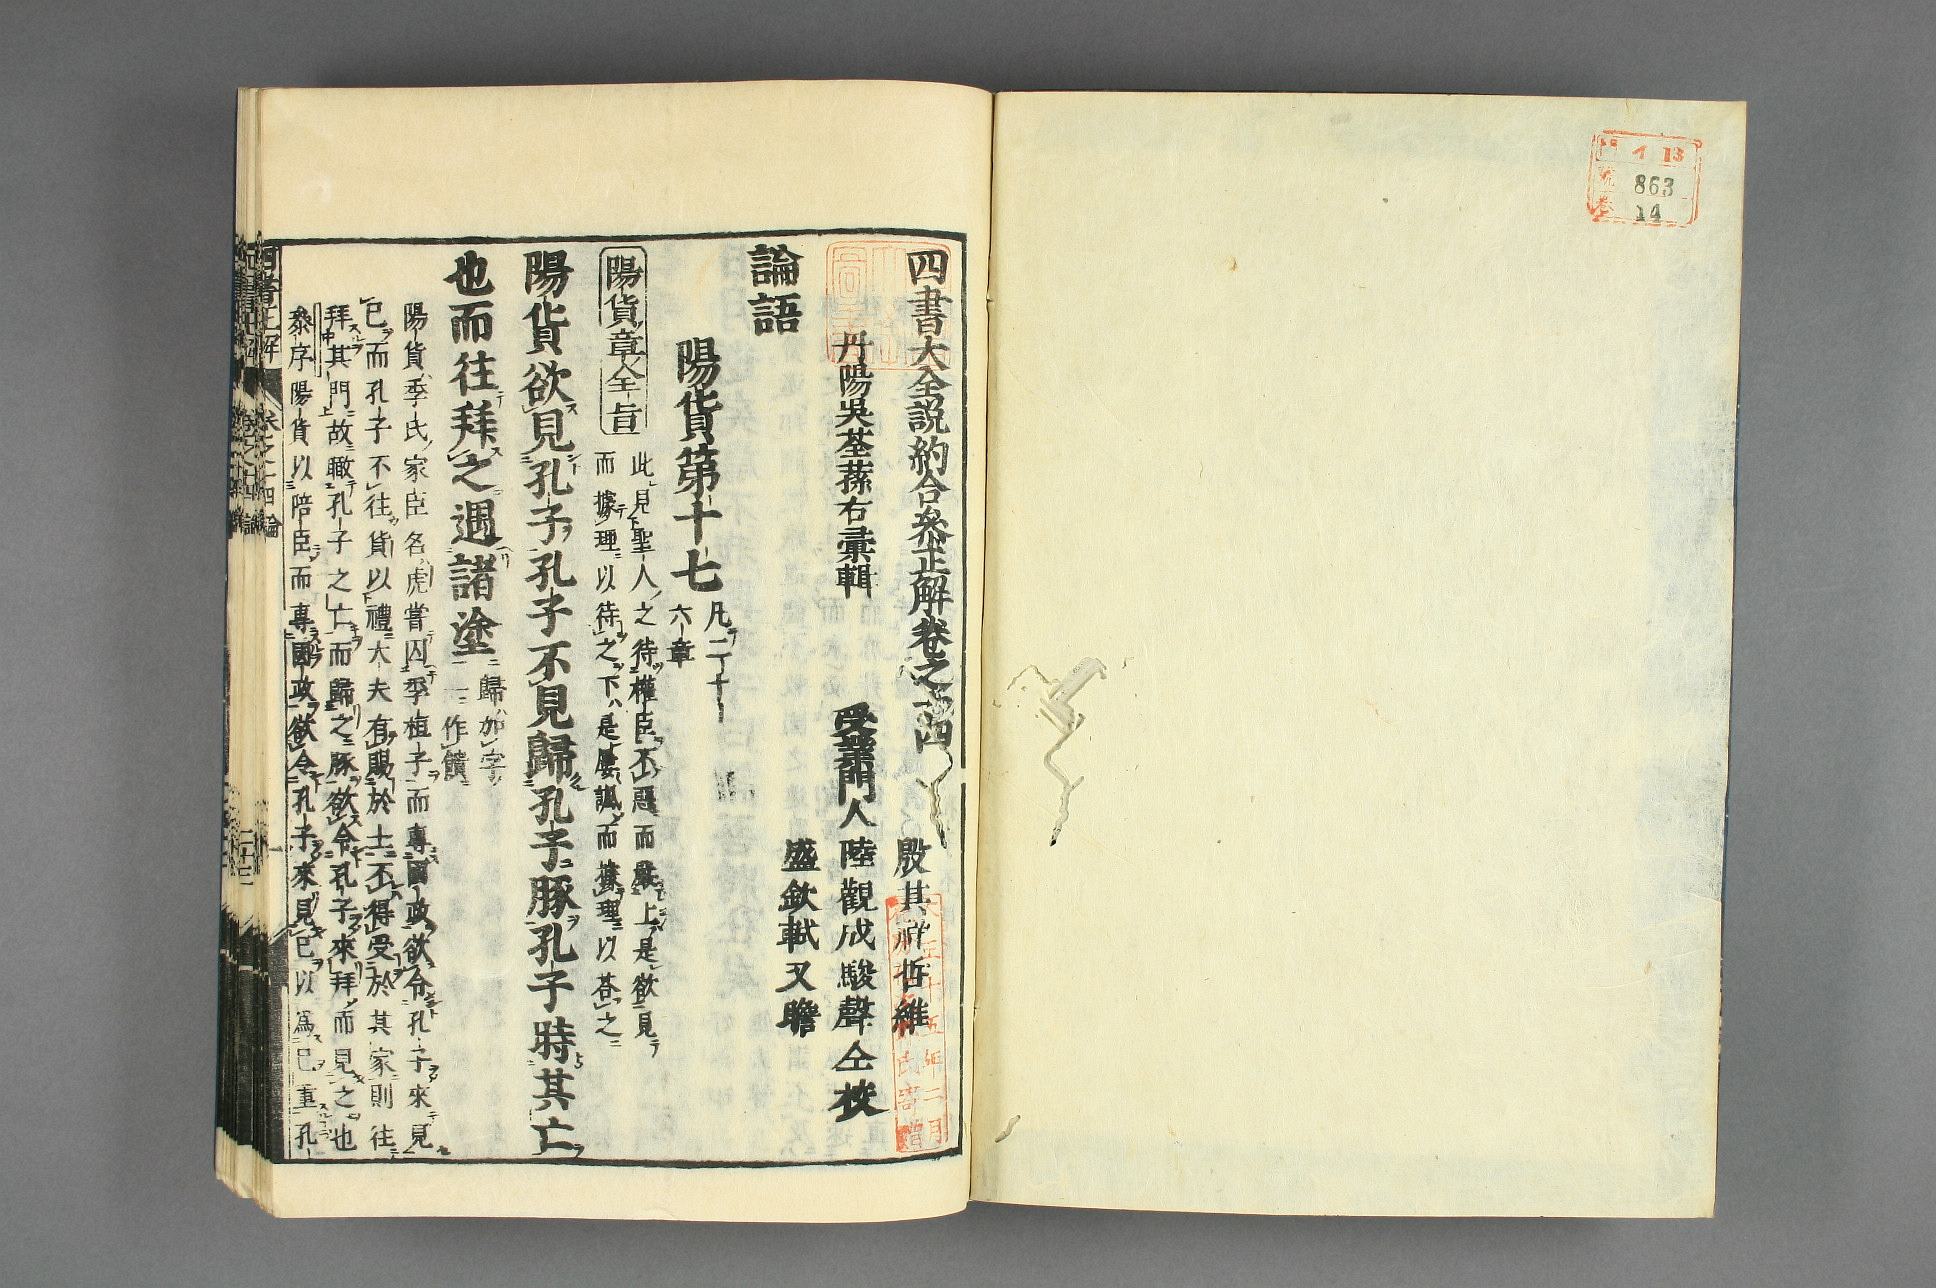 四書大全説約合參正解卷之十四
丹陽吳荃蓀右彙輯
受業門人
殷其 哲維
陸觀成駿聲仝校
盛欽軾又瞻
論語
陽貨第十七
凡二十
六章
陽貨章全旨
此見聖人之待權臣不惡而嚴上是欲見
而據理以待之下是屢諷而據理以荅之
陽貨欲見孔子孔子不見歸孔子豚孔子時其亡
也而往拜之遇諸塗
歸如字
一作饋
陽貨季氏家臣名虎嘗囚季桓子而專國政欲令孔子來見
己而孔子不往貨以禮大夫有賜於士不得受於其家則往
拜其門故瞰孔子之亡而歸之豚欲令孔子來拜而見之也
參序陽貨以陪臣而專國政欲令孔子來見己以爲己重孔
四書正解
卷之十四
論
門 1 13
號 863
卷 14
大正十五年二月
氏寄贈